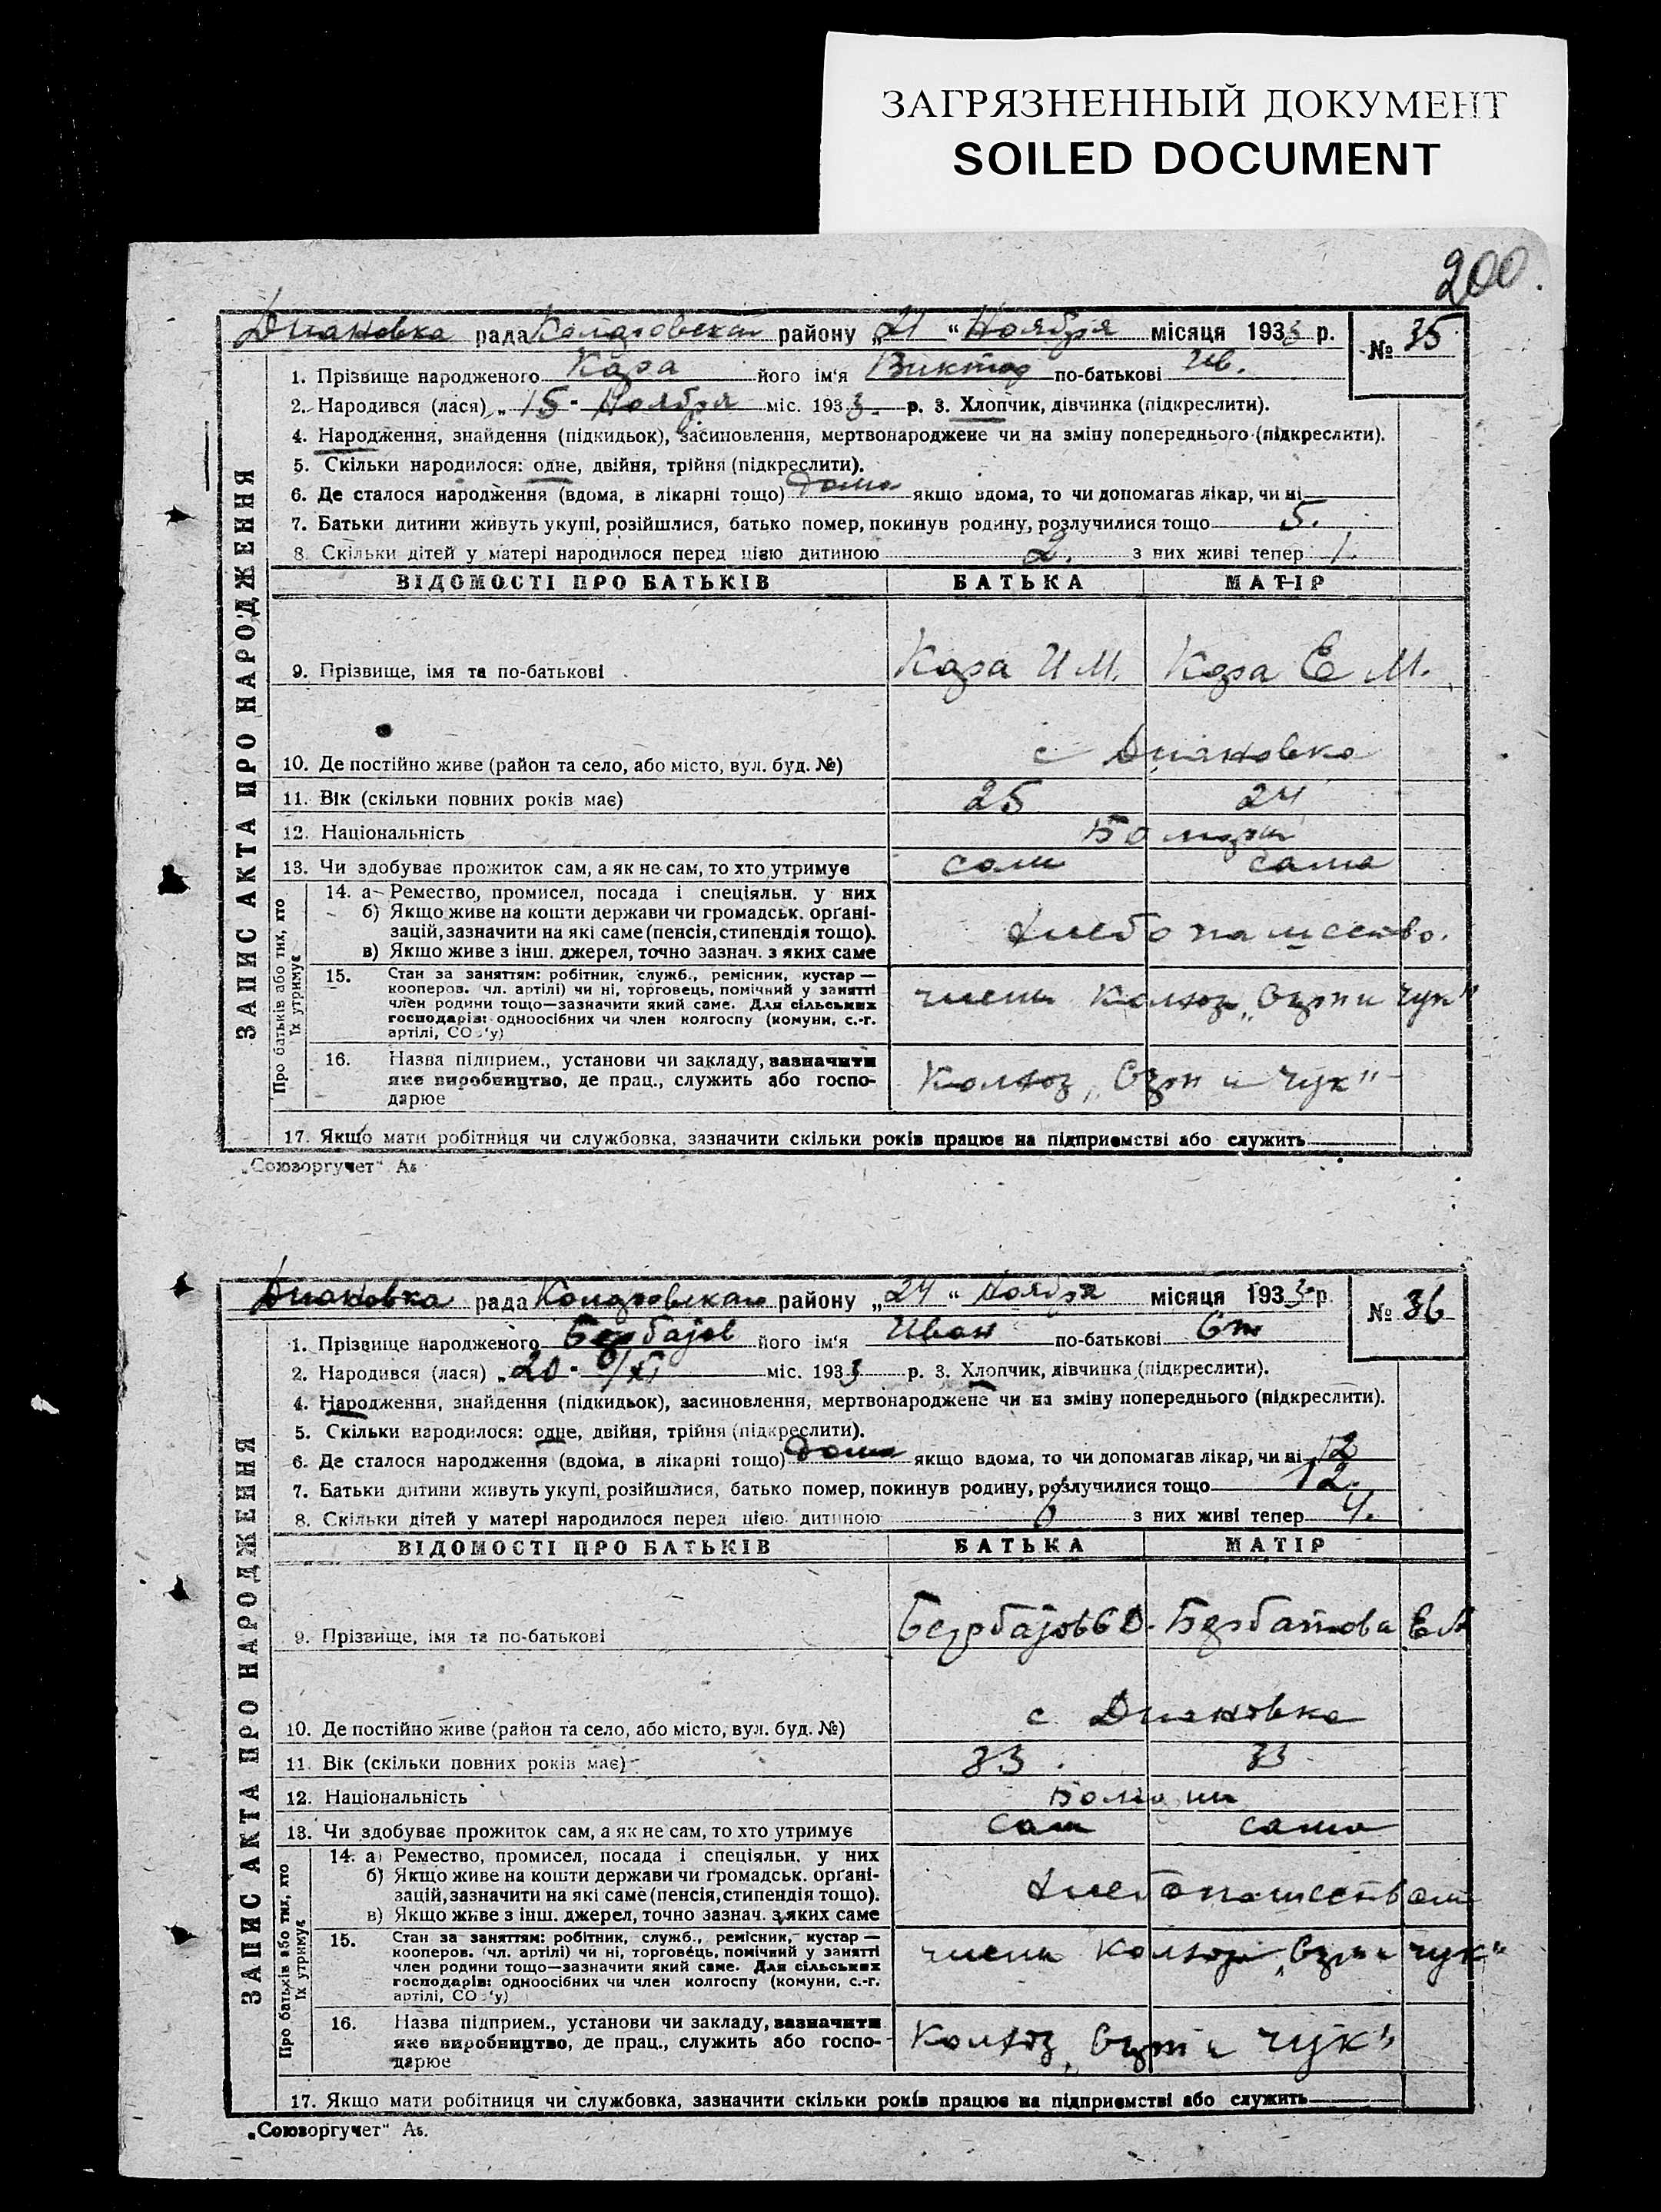 ЗАГРЯЗНЕННЫЙ ДОКУМЕНТ
SOILED DOCUMENT
200.
Диановка рада района „21“ Ноября місяця 1933 р. № 35
1. Прізвище народженого Кара його ім'я Виктор по-батькові Ив.
2. Народився (лася) „15" Ноября міс. 1933. р. 3. Хлопчик, дівчинка (підкреслити).
4. Народження, знайдення (підкидьок), засиновлення, мертвонароджене чи на зміну попереднього (підкреслити).
5. Скільки народилося: одне, двійня, трійня (підкреслити).
6. Де сталося народження (вдома, в лікарні тощо) дома якщо вдома, то чи допомагав лікар, чи ні
7. Батьки дитини живуть укупі, розійшлися, батько помер, покинув родину, розлучилися тощо 5.
8. Скільки дітей у матері народилося перед цією дитиною 2. з них живі тепер 1.
ЗАПИС АКТА ПРО НАРОДЖЕННЯ
ВІДОМОСТІ ПРО БАТЬКІВ БАТЬКА МАТІР
9. Прізвище, імя та по-батькові Кара И М. Кара Е М.
10. Де постійно живе (район та село, або місто, вул. буд. №) с Диановка
11. Вік (скільки повних років має) 25 24
12. Національність
13. Чи здобуває прожиток сам, а як не сам, то хто утримує сам сама
Про батьків або тих, хто їх утримує
14. а Ремество, промисел, посада і спеціяльн. у них
б) Якщо живе на кошти держави чи громадськ. орґані-
зацій, зазначити на які саме (пенсія, стипендія тощо).
в) Якщо живе з інш. джерел, точно зазнач. з яких саме
15. Стан за заняттям: робітник, служб., ремісник, кустар —
кооперов. чл. артілі) чи ні, торговець, помічний у занятті
член родини тощо—зазначити який саме. Для сільських
господарів: одноосібних чи член колгоспу (комуни, с.-г.
артілі, СО 'у)
16. Назва підприєм., установи чи закладу, зазначити
яке виробництво, де прац., служить або госпо-
дарює
Колхоз
17. Якщо мати робітниця чи службовка, зазначити скільки років працює на підприємстві або служить
„Союзоргучет“ А5
Диановка рада району „24“ Ноября місяця 1933 р. № 36
1. Прізвище народженого його ім'я Иван по-батькові Ст
2. Народився (лася) „20" /XI міс. 1933 р. 3. Хлопчик, дівчинка (підкреслити).
4. Народження, знайдення (підкидьок), засиновлення, мертвонароджене чи на зміну попереднього (підкреслити).
5. Скільки народилося: одне, двійня, трійня (підкреслити).
6. Де сталося народження (вдома, в лікарні тощо) дома якщо вдома, то чи допомагав лікар, чи ні 12
7. Батьки дитини живуть укупі, розійшлися, батько помер, покинув родину, розлучилися тощо 12.
8. Скільки дітей у матері народилося перед цією дитиною 6 з них живі тепер 4.
ЗАПИС АКТА ПРО НАРОДЖЕННЯ
ВІДОМОСТІ ПРО БАТЬКІВ БАТЬКА МАТІР
9. Прізвище, імя та по-батькові
10. Де постійно живе (район та село, або місто, вул. буд. №) с Диановка
11. Вік (скільки повних років має) 33. 33
12. Національність
13. Чи здобуває прожиток сам, а як не сам, то хто утримує сам сама
Про батьків або тих, хто їх утримує
14. а) Ремество, промисел, посада і спеціяльн. у них
б) Якщо живе на кошти держави чи громадськ. орґані-
зацій, зазначити на які саме (пенсія, стипендія тощо).
в) Якщо живе з інш. джерел, точно зазнач. з яких саме
15. Стан за заняттям: робітник, служб., ремісник, кустар —
кооперов. чл. артілі) чи ні, торговець, помічний у занятті
член родини тощо—зазначити який саме. Для сільських
господарів: одноосібних чи член колгоспу (комуни, с.-г.
артілі, СО 'у)
16. Назва підприєм., установи чи закладу, зазначити
яке виробництво, де прац., служить або госпо-
дарює
Колхоз
17. Якщо мати робітниця чи службовка, зазначити скільки років працює на підприємстві або служить
„Союзоргучет“ А5.